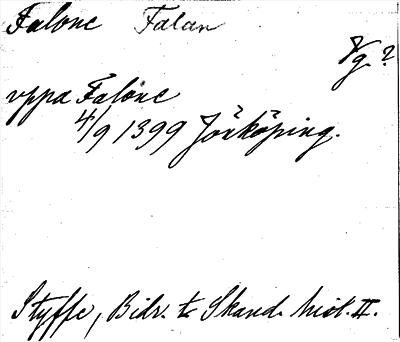 Falone Falan
Vg. ?
uppa Falone
4/9 1399 Jönköping.
Styffe, Bidr. t. Skand. hist. II.